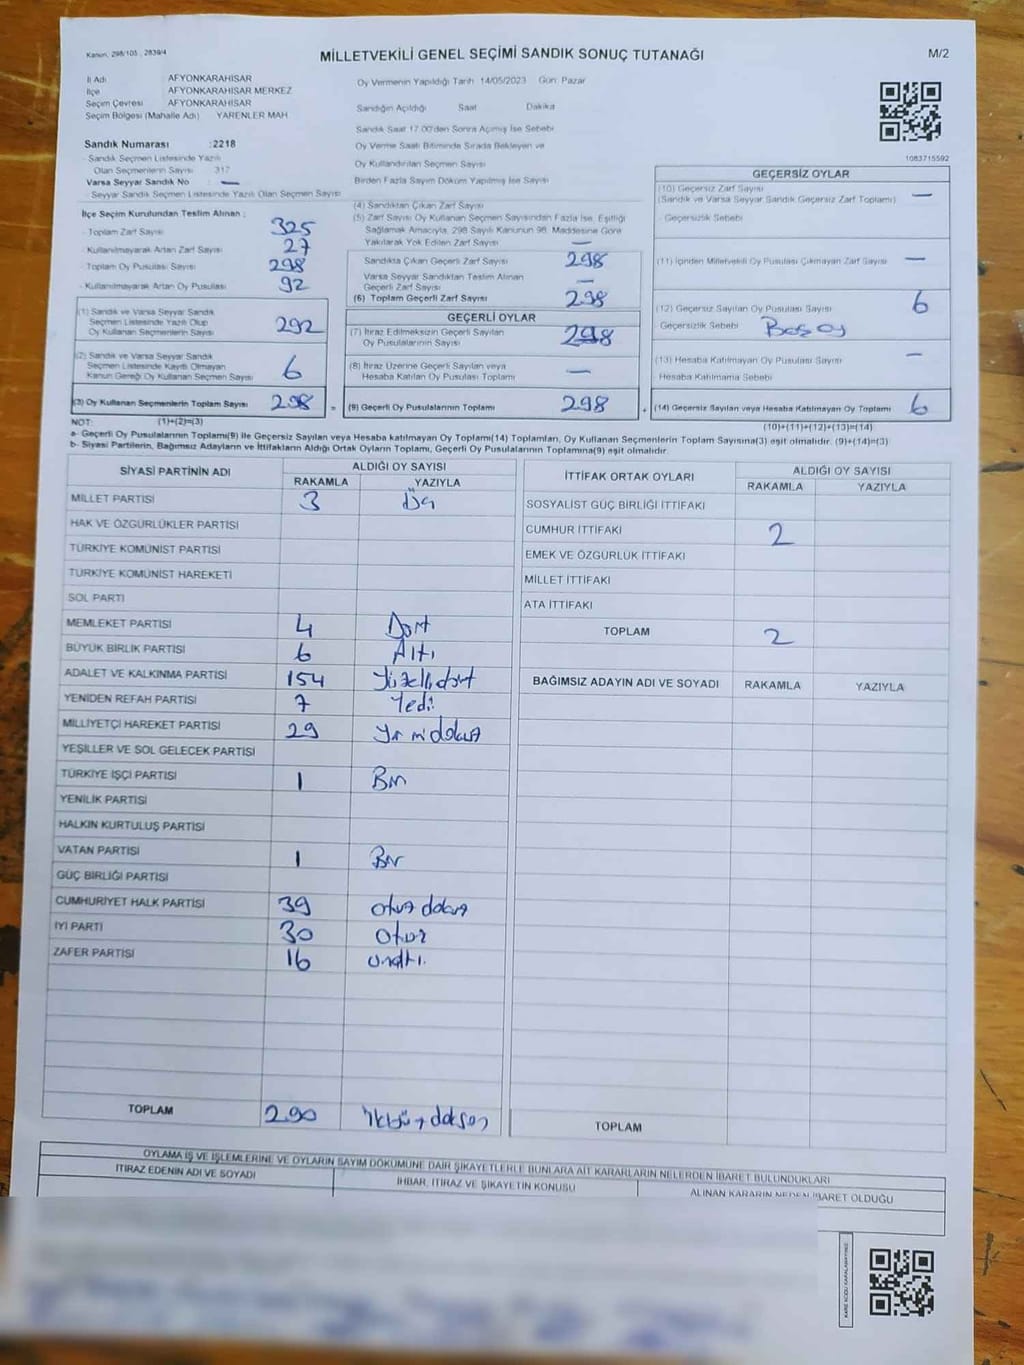 Kanun, 298/105 , 2839/4
MİLLETVEKİLİ GENEL SEÇİMİ SANDIK SONUÇ TUTANAĞI
M/2
İl Adı : AFYONKARAHİSAR
İlçe : AFYONKARAHİSAR MERKEZ
Seçim Çevresi : AFYONKARAHİSAR
Seçim Bölgesi (Mahalle Adı) : YARENLER MAH
Oy Vermenin Yapıldığı Tarih 14/05/2023 Gün: Pazar
Sandığın Açıldığı Saat Dakika
Sandık Saat 17.00'den Sonra Açılmış İse Sebebi
Oy Verme Saati Bitiminde Sırada Bekleyen ve
Oy Kullandırılan Seçmen Sayısı
Birden Fazla Sayım Döküm Yapılmış İse Sayısı
1083715592
Sandık Numarası :2218
- Sandık Seçmen Listesinde Yazılı
Olan Seçmenlerin Sayısı 317
Varsa Seyyar Sandık No : —
- Seyyar Sandık Seçmen Listesinde Yazılı Olan Seçmen Sayısı
İlçe Seçim Kurulundan Teslim Alınan ;
- Toplam Zarf Sayısı 325
- Kullanılmayarak Artan Zarf Sayısı 27
- Toplam Oy Pusulası Sayısı 298
- Kullanılmayarak Artan Oy Pusulası 92
(1) Sandık ve Varsa Seyyar Sandık
Seçmen Listesinde Yazılı Olup
Oy Kullanan Seçmenlerin Sayısı 292
(2) Sandık ve Varsa Seyyar Sandık
Seçmen Listesinde Kayıtlı Olmayan
Kanun Gereği Oy Kullanan Seçmen Sayısı 6
(3) Oy Kullanan Seçmenlerin Toplam Sayısı 298 =
(1)+(2)=(3)
(4) Sandıktan Çıkan Zarf Sayısı
(5) Zarf Sayısı Oy Kullanan Seçmen Sayısından Fazla İse, Eşitliği
Sağlamak Amacıyla, 298 Sayılı Kanunun 98. Maddesine Göre
Yakılarak Yok Edilen Zarf Sayısı —
Sandıkta Çıkan Geçerli Zarf Sayısı 298
Varsa Seyyar Sandıktan Teslim Alınan
Geçerli Zarf Sayısı —
(6) Toplam Geçerli Zarf Sayısı 298
GEÇERLİ OYLAR
(7) İtiraz Edilmeksizin Geçerli Sayılan
Oy Pusulalarının Sayısı 298
(8) İtiraz Üzerine Geçerli Sayılan veya
Hesaba Katılan Oy Pusulası Toplamı —
(9) Geçerli Oy Pusulalarının Toplamı 298 +
GEÇERSİZ OYLAR
(10) Geçersiz Zarf Sayısı
(Sandık ve Varsa Seyyar Sandık Geçersiz Zarf Toplamı) —
- Geçersizlik Sebebi
(11) İçinden Milletvekili Oy Pusulası Çıkmayan Zarf Sayısı —
(12) Geçersiz Sayılan Oy Pusulası Sayısı 6
Geçersizlik Sebebi Boş oy
(13) Hesaba Katılmayan Oy Pusulası Sayısı —
Hesaba Katılmama Sebebi
(14) Geçersiz Sayılan veya Hesaba Katılmayan Oy Toplamı 6
(10)+(11)+(12)+(13)=(14)
NOT:
a- Geçerli Oy Pusulalarının Toplamı(9) ile Geçersiz Sayılan veya Hesaba katılmayan Oy Toplamı(14) Toplamları, Oy Kullanan Seçmenlerin Toplam Sayısına(3) eşit olmalıdır. (9)+(14)=(3)
b- Siyasi Partilerin, Bağımsız Adayların ve İttifakların Aldığı Ortak Oyların Toplamı, Geçerli Oy Pusulalarının Toplamına(9) eşit olmalıdır.
SİYASİ PARTİNİN ADI ALDIĞI OY SAYISI
RAKAMLA YAZIYLA
MİLLET PARTİSİ 3 Üç
HAK VE ÖZGÜRLÜKLER PARTİSİ
TÜRKİYE KOMÜNİST PARTİSİ
TÜRKİYE KOMÜNİST HAREKETİ
SOL PARTİ
MEMLEKET PARTİSİ 4 Dört
BÜYÜK BİRLİK PARTİSİ 6 Altı
ADALET VE KALKINMA PARTİSİ 154 Yüzellidört
YENİDEN REFAH PARTİSİ 7 Yedi
MİLLİYETÇİ HAREKET PARTİSİ 29 Yirmidokuz
YEŞİLLER VE SOL GELECEK PARTİSİ
TÜRKİYE İŞÇİ PARTİSİ 1 Bir
YENİLİK PARTİSİ
HALKIN KURTULUŞ PARTİSİ
VATAN PARTİSİ 1 Bir
GÜÇ BİRLİĞİ PARTİSİ
CUMHURİYET HALK PARTİSİ 39 otuz dokuz
İYİ PARTİ 30 otuz
ZAFER PARTİSİ 16 onaltı.
TOPLAM 290 İkiyüz doksan
İTTİFAK ORTAK OYLARI ALDIĞI OY SAYISI
RAKAMLA YAZIYLA
SOSYALİST GÜÇ BİRLİĞİ İTTİFAKI
CUMHUR İTTİFAKI 2
EMEK VE ÖZGÜRLÜK İTTİFAKI
MİLLET İTTİFAKI
ATA İTTİFAKI
TOPLAM 2
BAĞIMSIZ ADAYIN ADI VE SOYADI RAKAMLA YAZIYLA
TOPLAM
OYLAMA İŞ VE İŞLEMLERİNE VE OYLARIN SAYIM DÖKÜMÜNE DAİR ŞİKAYETLERLE BUNLARA AİT KARARLARIN NELERDEN İBARET BULUNDUKLARI
İTİRAZ EDENİN ADI VE SOYADI
İHBAR, İTİRAZ VE ŞİKAYETİN KONUSU
ALINAN KARARIN NEDEN İBARET OLDUĞU